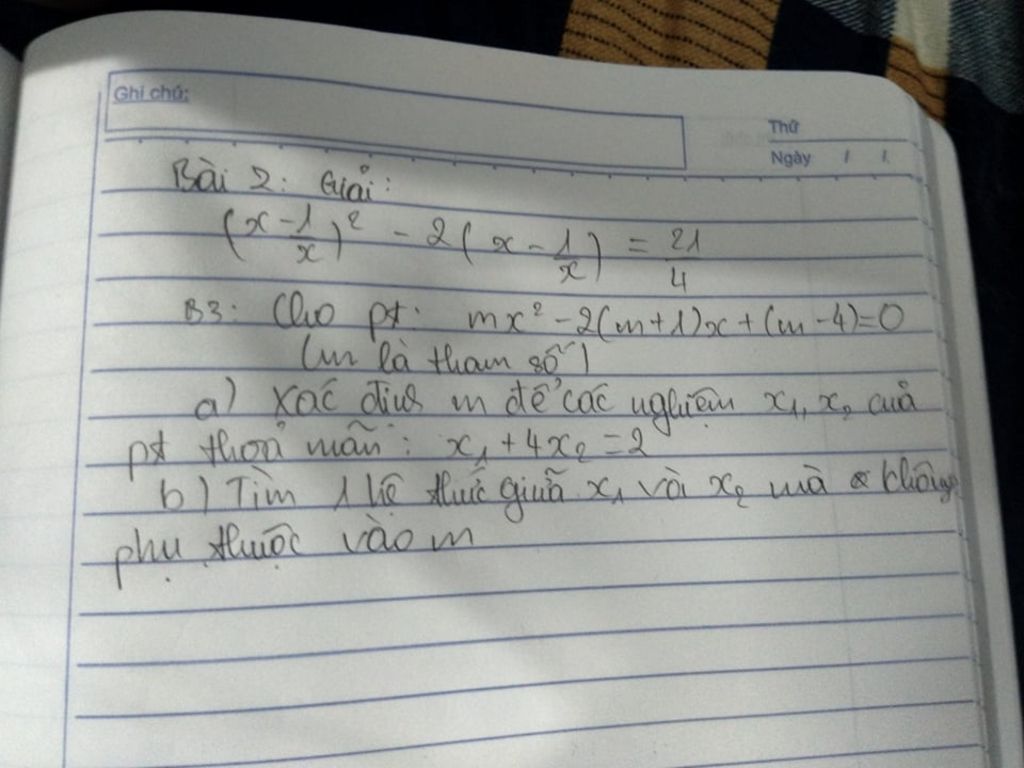 Ghi chú:
Thứ
Ngày / /
Bài 2: Giải:
(x - 1/x)² - 2(x - 1/x) = 21/4
B3: Cho pt: mx² - 2(m+1)x + (m-4) = 0
(m là tham số)
a) Xác định m để các nghiệm x₁, x₂ của
pt thoả mãn: x₁ + 4x₂ = 2
b) Tìm 1 hệ thức giữa x₁ và x₂ mà không
phụ thuộc vào m